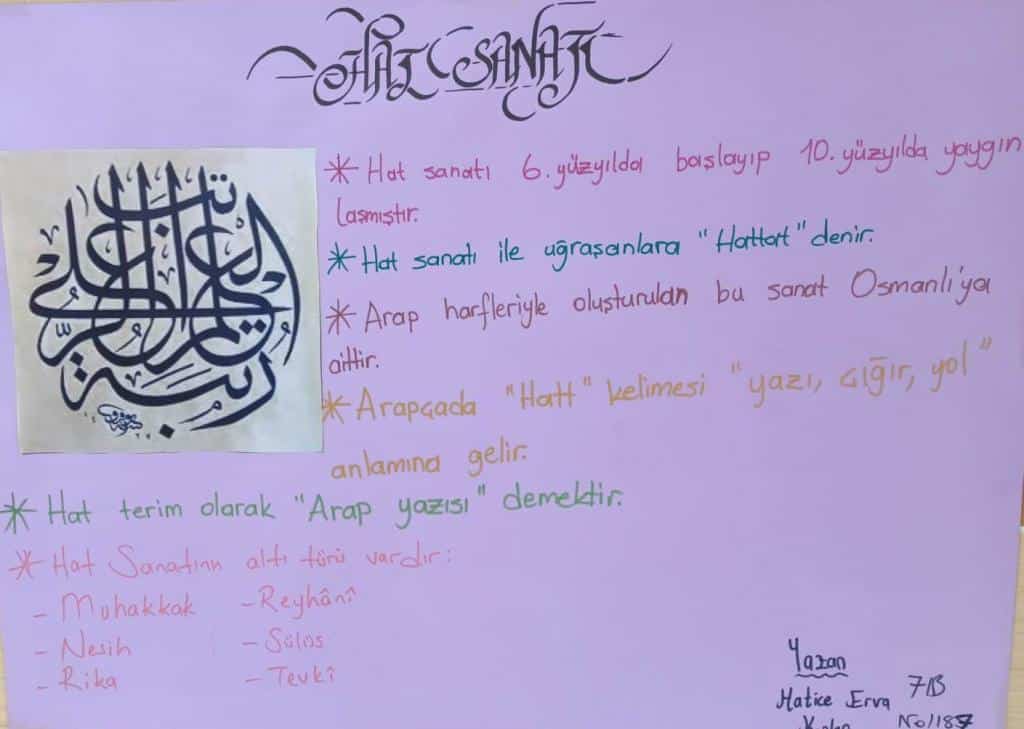 HAT SANATI
* Hat sanatı 6. yüzyılda başlayıp 10. yüzyılda yaygın
laşmıştır.
* Hat sanatı ile uğraşanlara "Hattat" denir.
* Arap harfleriyle oluşturulan bu sanat Osmanlı'ya
aittir.
* Arapçada "Hatt" kelimesi "yazı, çığır, yol"
anlamına gelir.
* Hat terim olarak "Arap yazısı" demektir.
* Hat Sanatının altı türü vardır:
- Muhakkak - Reyhânî
- Nesih - Sülüs
- Rika - Tevkî
Yazan
Hatice Erva 7/B
No/187